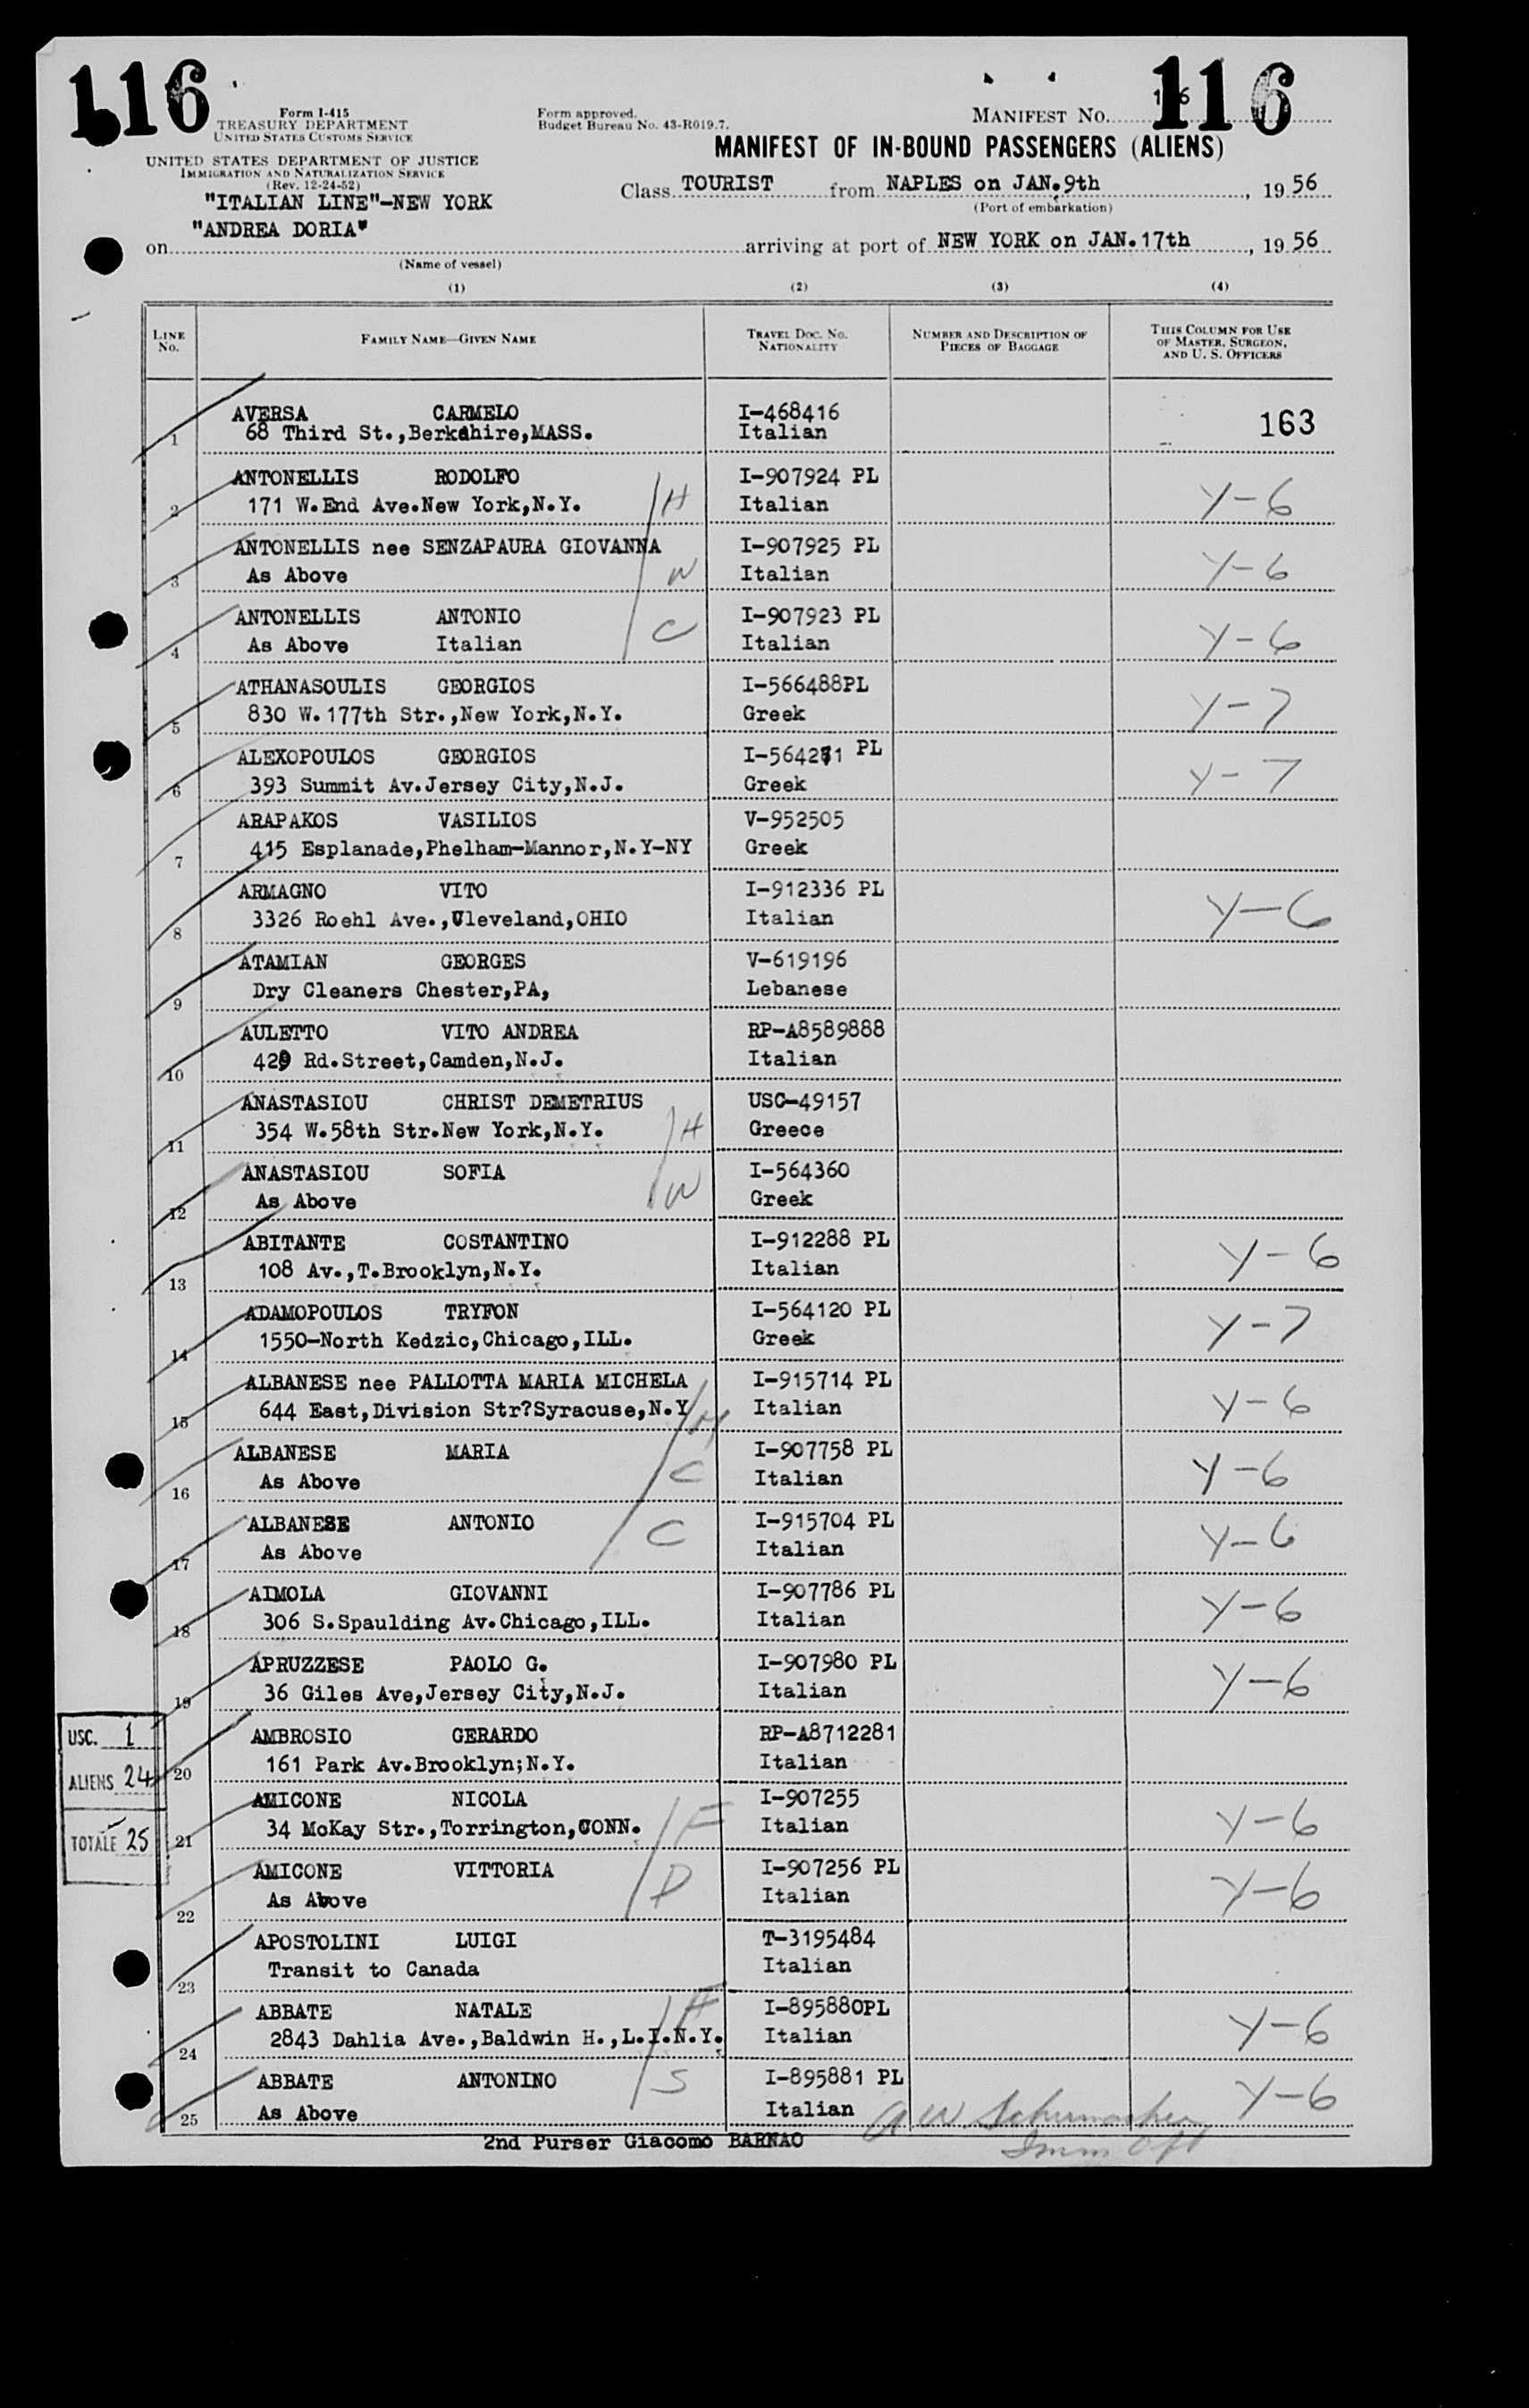 116
116
Form I-415
TREASURY DEPARTMENT
UNITED STATES CUSTOMS SERVICE
Form approved.
Budget Bureau No. 43-R019.7.
MANIFEST NO.
UNITED STATES DEPARTMENT OF JUSTICE
IMMIGRATION AND NATURALIZATION SERVICE
(Rev. 12-24-52)
MANIFEST OF IN-BOUND PASSENGERS (ALIENS)
"ITALIAN LINE"-NEW YORK
Class TOURIST from NAPLES on JAN.9th, 1956
(Port of embarkation)
on "ANDREA DORIA" arriving at port of NEW YORK on JAN.17th, 1956
(Name of vessel)
(1) (2) (3) (4)
LINE NO. FAMILY NAME—GIVEN NAME TRAVEL DOC. NO. NATIONALITY NUMBER AND DESCRIPTION OF PIECES OF BAGGAGE THIS COLUMN FOR USE OF MASTER, SURGEON, AND U. S. OFFICERS
AVERSA CARMELO I-468416 163
1 68 Third St.,Berkshire,MASS. Italian
ANTONELLIS RODOLFO I-907924 PL
2 171 W.End Ave.New York,N.Y. H Italian Y-6
ANTONELLIS nee SENZAPAURA GIOVANNA I-907925 PL
3 As Above W Italian Y-6
ANTONELLIS ANTONIO I-907923 PL
4 As Above Italian C Italian Y-6
ATHANASOULIS GEORGIOS I-566488PL
5 830 W.177th Str.,New York,N.Y. Greek Y-7
ALEXOPOULOS GEORGIOS PL
6 393 Summit Av.Jersey City,N.J. Greek Y-7
ARAPAKOS VASILIOS V-952505
7 415 Esplanade,Phelham-Mannor,N.Y-NY Greek
ARMAGNO VITO I-912336 PL
8 3326 Roehl Ave.,Cleveland,OHIO Italian Y-6
ATAMIAN GEORGES V-619196
9 Dry Cleaners Chester,PA, Lebanese
AULETTO VITO ANDREA RP-A8589888
10 429 Rd.Street,Camden,N.J. Italian
ANASTASIOU CHRIST DEMETRIUS USC-49157
11 354 W.58th Str.New York,N.Y. H Greece
ANASTASIOU SOFIA I-564360
12 As Above W Greek
ABITANTE COSTANTINO I-912288 PL
13 108 Av.,T.Brooklyn,N.Y. Italian Y-6
ADAMOPOULOS TRYFON I-564120 PL
14 1550-North Kedzic,Chicago,ILL. Greek Y-7
ALBANESE nee PALLOTTA MARIA MICHELA I-915714 PL
15 644 East,Division Str?Syracuse,N.Y M Italian Y-6
ALBANESE MARIA I-907758 PL
16 As Above C Italian Y-6
ALBANESE ANTONIO I-915704 PL
17 As Above C Italian Y-6
AIMOLA GIOVANNI I-907786 PL
18 306 S.Spaulding Av.Chicago,ILL. Italian Y-6
APRUZZESE PAOLO G. I-907980 PL
19 36 Giles Ave,Jersey City,N.J. Italian Y-6
AMBROSIO GERARDO RP-A8712281
20 161 Park Av.Brooklyn;N.Y. Italian
AMICONE NICOLA I-907255
21 34 McKay Str.,Torrington,CONN. F Italian Y-6
AMICONE VITTORIA I-907256 PL
22 As Above D Italian Y-6
APOSTOLINI LUIGI T-3195484
23 Transit to Canada Italian
ABBATE NATALE F I-895880PL
24 2843 Dahlia Ave.,Baldwin H.,L.I.N.Y. Italian Y-6
ABBATE ANTONINO S I-895881 PL
25 As Above Italian Y-6
USC. 1
ALIENS 24
TOTALE 25
2nd Purser Giacomo BARNAO
A W Schumacher
Imm Off